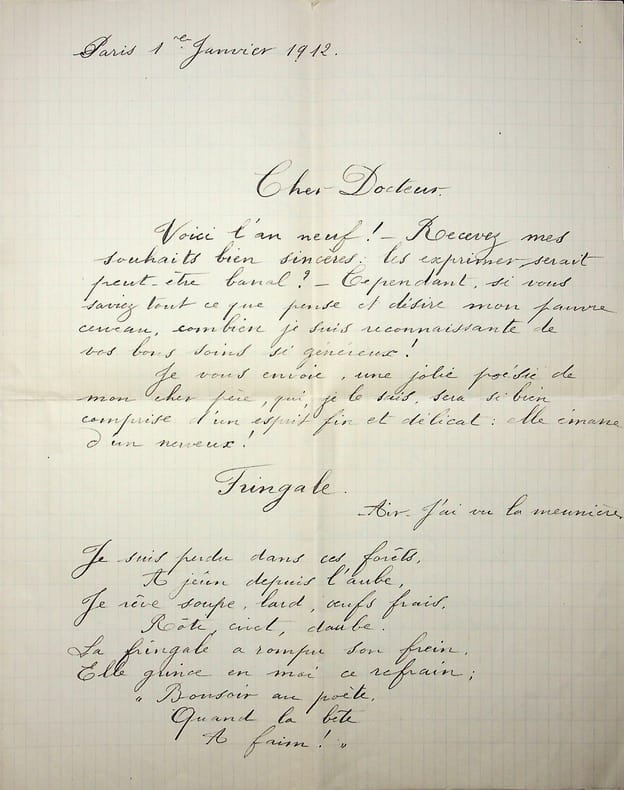 Paris 1er Janvier 1912.
Cher Docteur.
Voici l'an neuf! – Recevez mes
souhaits bien sincères: les exprimer serait
peut-être banal? – Cependant, si vous
saviez tout ce que pense et désire mon pauvre
cerveau, combien je suis reconnaissante de
vos bons soins si généreux!
Je vous envoie, une jolie poésie de
mon cher père, qui, je le sais, sera si bien
comprise d'un esprit fin et délicat: elle émane
d'un nerveux!
Fringale.
Air. J'ai vu la meunière
Je suis perdu dans ces forêts,
A jeûn depuis l'aube,
Je rêve soupe, lard, œufs frais,
Rôti, civet, daube.
La fringale a rompu son frein,
Elle grince en moi ce refrain;
" Bonsoir au poète,
Quand la bête
A faim! "